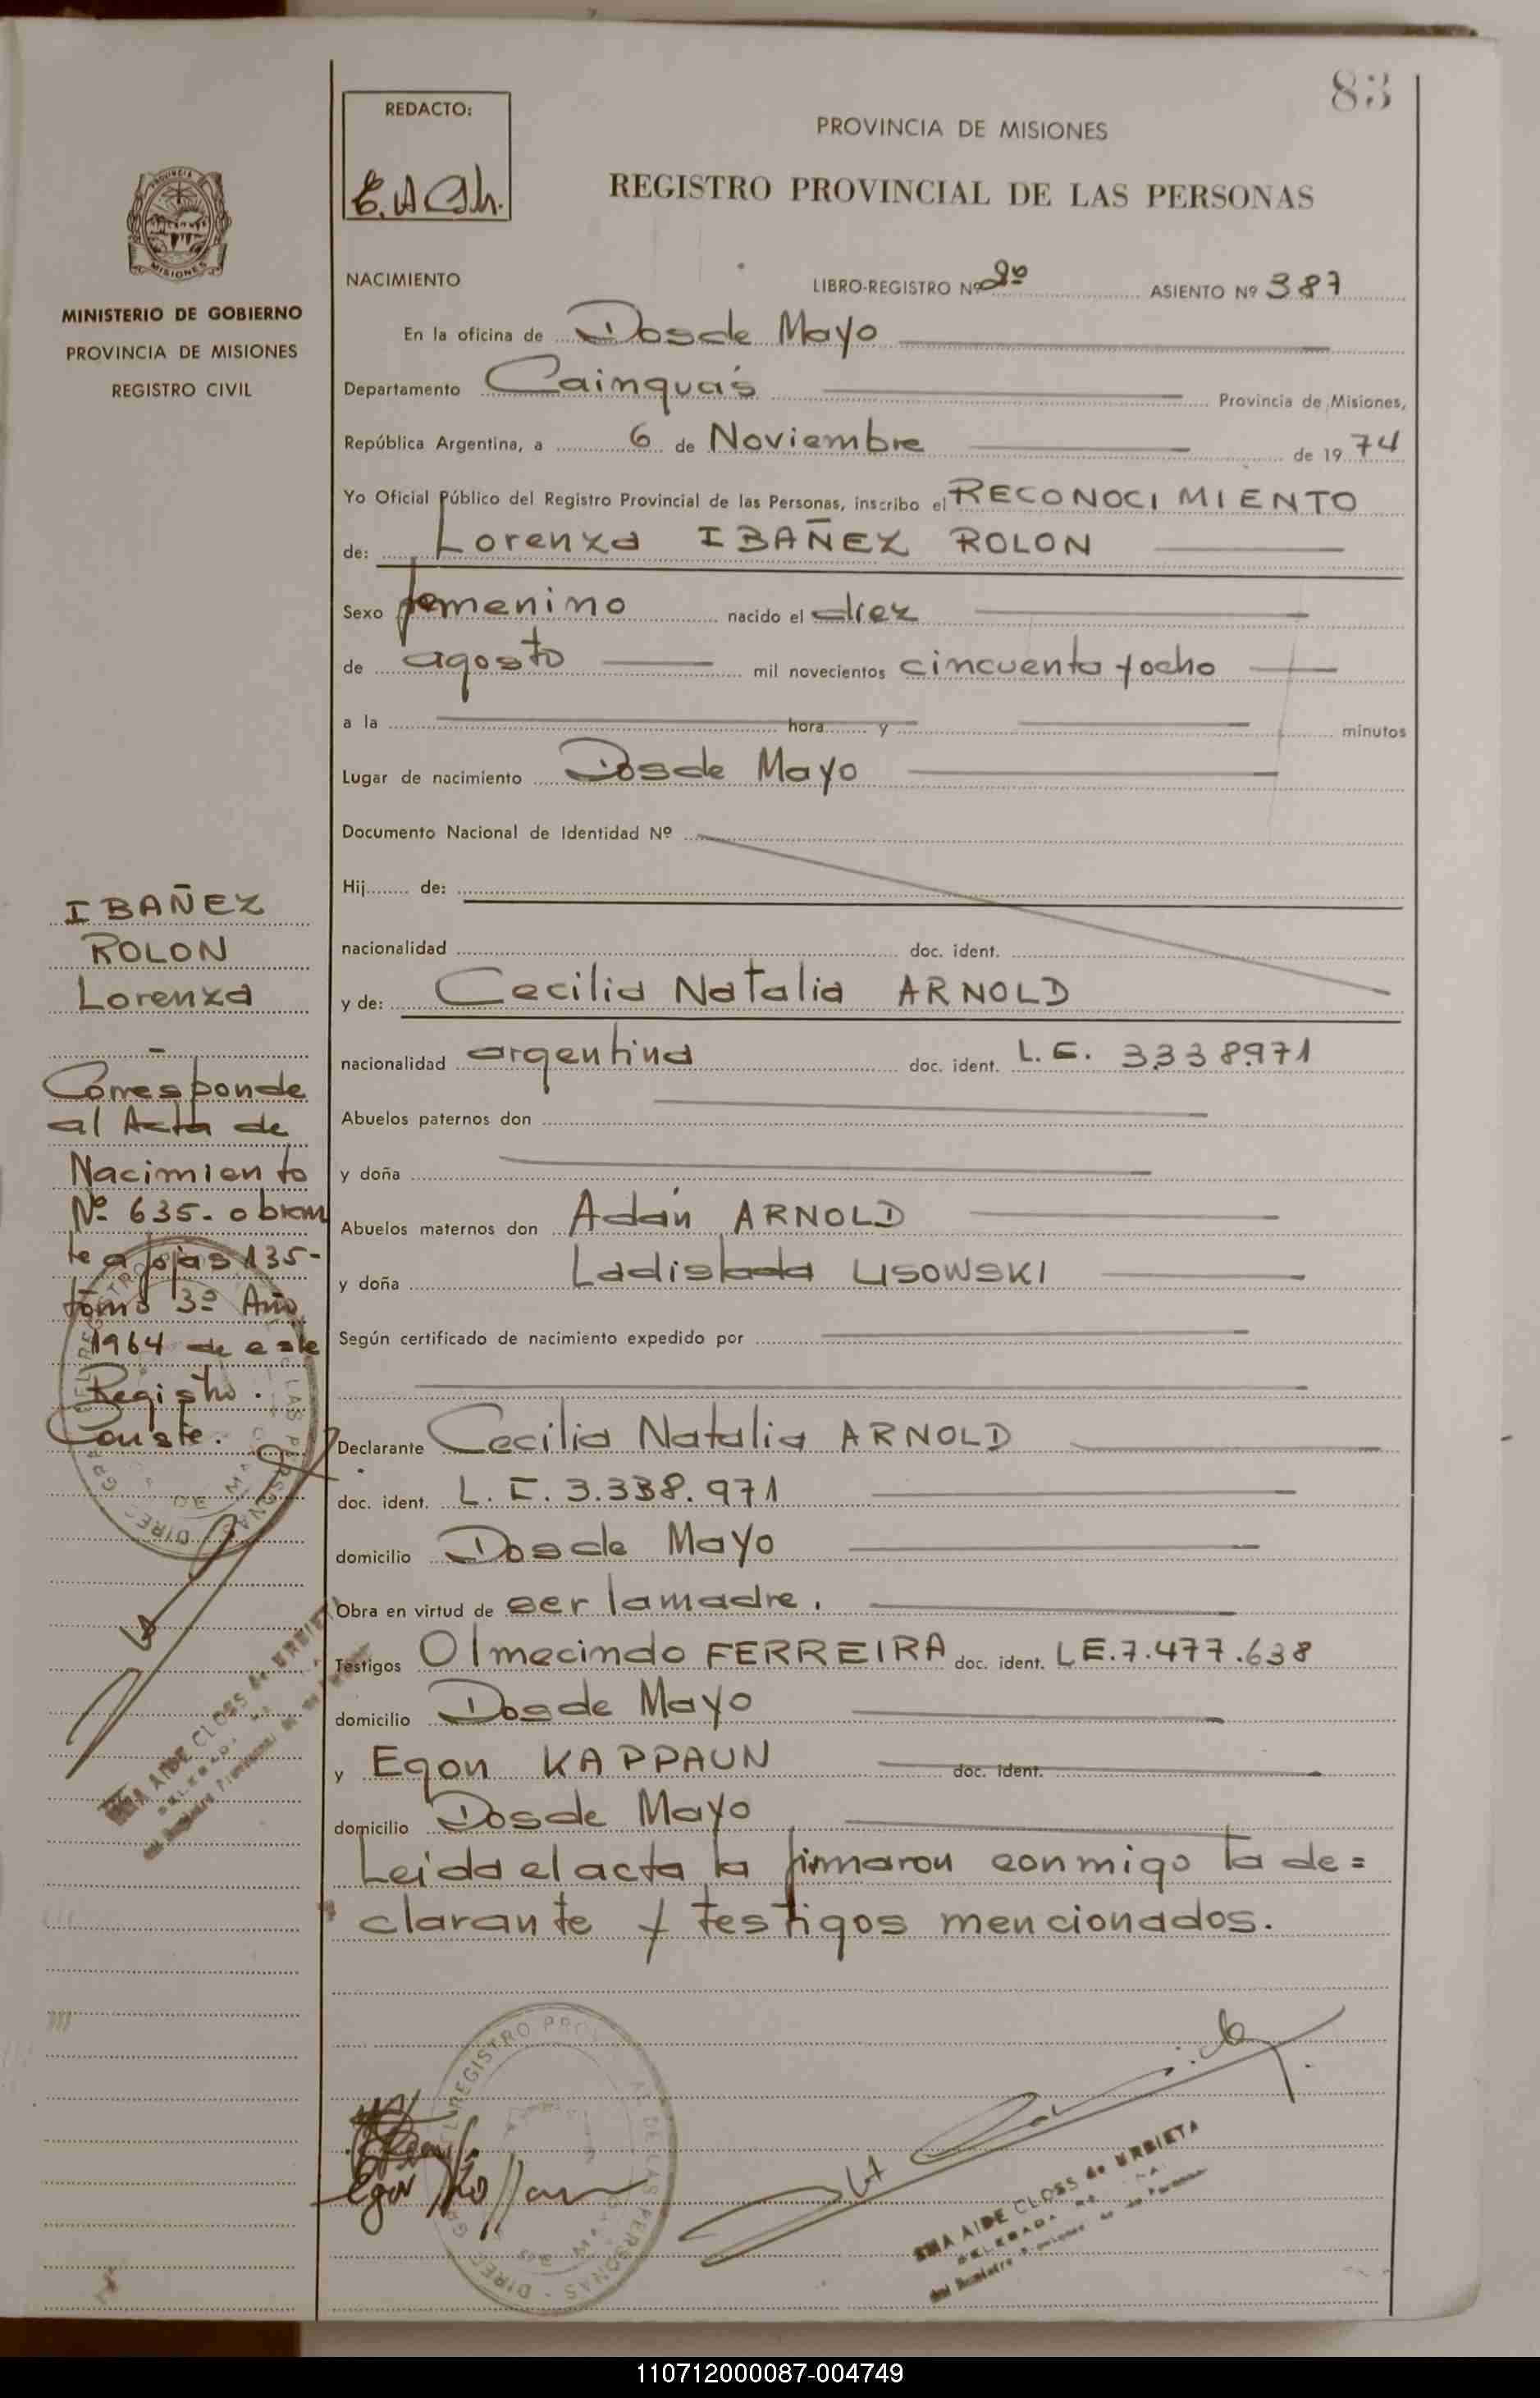 83
REDACTO:
PROVINCIA DE MISIONES
REGISTRO PROVINCIAL DE LAS PERSONAS
MISIONES
MINISTERIO DE GOBIERNO
PROVINCIA DE MISIONES
REGISTRO CIVIL
NACIMIENTO LIBRO-REGISTRO Nº 2º ASIENTO Nº 387
En la oficina de Dos de Mayo
Departamento Cainguás Provincia de Misiones,
República Argentina, a 6 de Noviembre de 19 74
Yo Oficial Público del Registro Provincial de las Personas, inscribo el RECONOCIMIENTO
de: Lorenza IBAÑEZ ROLON
Sexo femenino nacido el diez
de agosto mil novecientos cincuenta y ocho
a la hora y minutos
Lugar de nacimiento Dos de Mayo
Documento Nacional de Identidad Nº
Hij de:
nacionalidad doc. ident.
y de: Cecilia Natalia ARNOLD
nacionalidad argentina doc. ident. L.E. 3.338.971
Abuelos paternos don
y doña
Abuelos maternos don Adán ARNOLD
y doña Ladislada LISOWSKI
Según certificado de nacimiento expedido por
Declarante Cecilia Natalia ARNOLD
doc. ident. L.E. 3.338.971
domicilio Dos de Mayo
Obra en virtud de ser la madre.
Testigos Olmecindo FERREIRA doc. ident. LE.7.477.638
domicilio Dos de Mayo
y Egon KAPPAUN doc. ident.
domicilio Dos de Mayo
Leida el acta la firmaron conmigo la de=
clarante y testigos mencionados.
IBAÑEZ
ROLON
Lorenza
Corresponde
al Acta de
Nacimiento
Nº 635- obran
te a fojas 135-
tomo 3º Año
1964 de este
Registro.
Conste.
AIDE CLOSS de URBIETA
AIDE CLOSS de URBIETA
DELEGADA
110712000087-004749